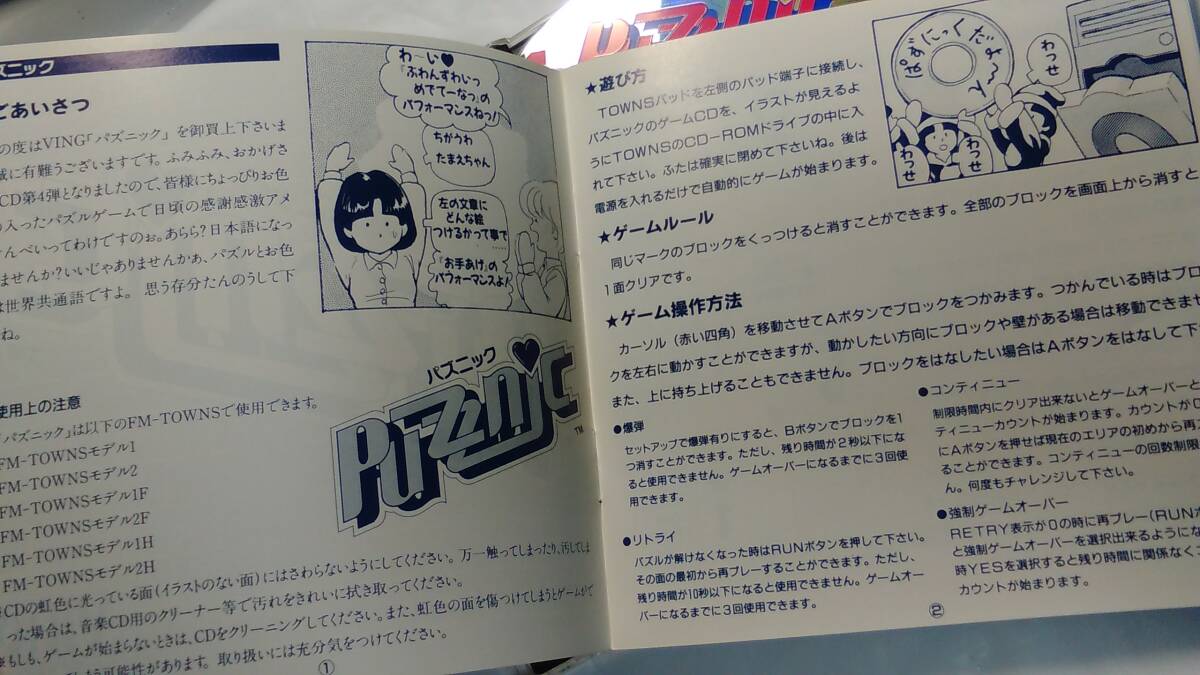 ズニック
ごあいさつ
の度はVING「パズニック」を御買上下さいま
誠に有難うございますです。ふみふみ、おかげさ
CD第4弾となりましたので、皆様にちょっぴりお色
入ったパズルゲームで日頃の感謝感激アメ
んべいってわけですのぉ。あらら?日本語になっ
ませんか?いいじゃありませんかぁ、パズルとお色
は世界共通語ですよ。 思う存分たんのうして下
ね。
わーい♥
「ふわんすわいっ
めでてーなっ」の
パフォーマンスねっ!
ちがうわ
たまえちゃん
左の文章に
どんな絵
つけるかって事で
……
「お手あげ」の
パフォーマンスよ!
パズニック
PUZZNIC
TM
使用上の注意
「パズニック」は以下のFM-TOWNSで使用できます。
FM-TOWNSモデル1
FM-TOWNSモデル2
FM-TOWNSモデル1F
FM-TOWNSモデル2F
FM-TOWNSモデル1H
FM-TOWNSモデル2H
CDの虹色に光っている面(イラストのない面)にはさわらないようにしてください。万一触ってしまったり、汚してしま
った場合は、音楽CD用のクリーナー等で汚れをきれいに拭き取ってください。
もしも、ゲームが始まらないときは、CDをクリーニングしてください。また、虹色の面を傷つけてしまうとゲームがで
しまう可能性があります。取り扱いには充分気をつけてください。
①
★遊び方
TOWNSパッドを左側のパッド端子に接続し、
パズニックのゲームCDを、イラストが見えるよ
うにTOWNSのCD-ROMドライブの中に入
れて下さい。ふたは確実に閉めて下さいね。後は
電源を入れるだけで自動的にゲームが始まります。
ぱずにっくだよ〜
わっせ
わっせ
わっせ
★ゲームルール
同じマークのブロックをくっつけると消すことができます。全部のブロックを画面上から消すと
1面クリアです。
★ゲーム操作方法
カーソル(赤い四角)を移動させてAボタンでブロックをつかみます。つかんでいる時はブロ
クを左右に動かすことができますが、動かしたい方向にブロックや壁がある場合は移動できま
また、上に持ち上げることもできません。ブロックをはなしたい場合はAボタンをはなして下
●爆弾
セットアップで爆弾有りにすると、Bボタンでブロックを1
つ消すことができます。ただし、残り時間が2秒以下にな
ると使用できません。ゲームオーバーになるまでに3回使
用できます。
●リトライ
パズルが解けなくなった時はRUNボタンを押して下さい。
その面の最初から再プレーすることができます。ただし、
残り時間が10秒以下になると使用できません。ゲームオー
バーになるまでに3回使用できます。
●コンティニュー
制限時間内にクリア出来ないとゲームオーバーと
ティニューカウントが始まります。カウントが0
にAボタンを押せば現在のエリアの初めから再プ
ることができます。コンティニューの回数制限
ん。何度もチャレンジして下さい。
●強制ゲームオーバー
RETRY表示が0の時に再プレー(RUNボ
と強制ゲームオーバーを選択出来るようにな
時YESを選択すると残り時間に関係なくコ
カウントが始まります。
②